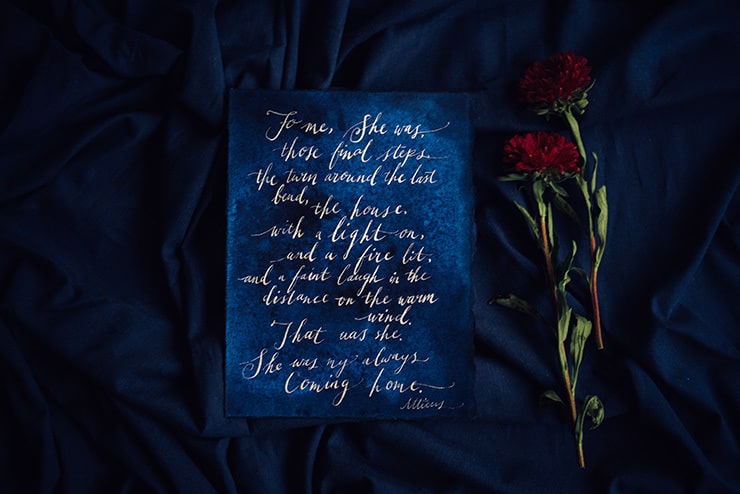 To me, She was,
those final steps.
the turn around the last
bend,
the house.
with a light on,
and a fire lit.
and a faint laugh in the
distance on the warm
wind.
That was she.
She was my always
Coming home.
Atticus